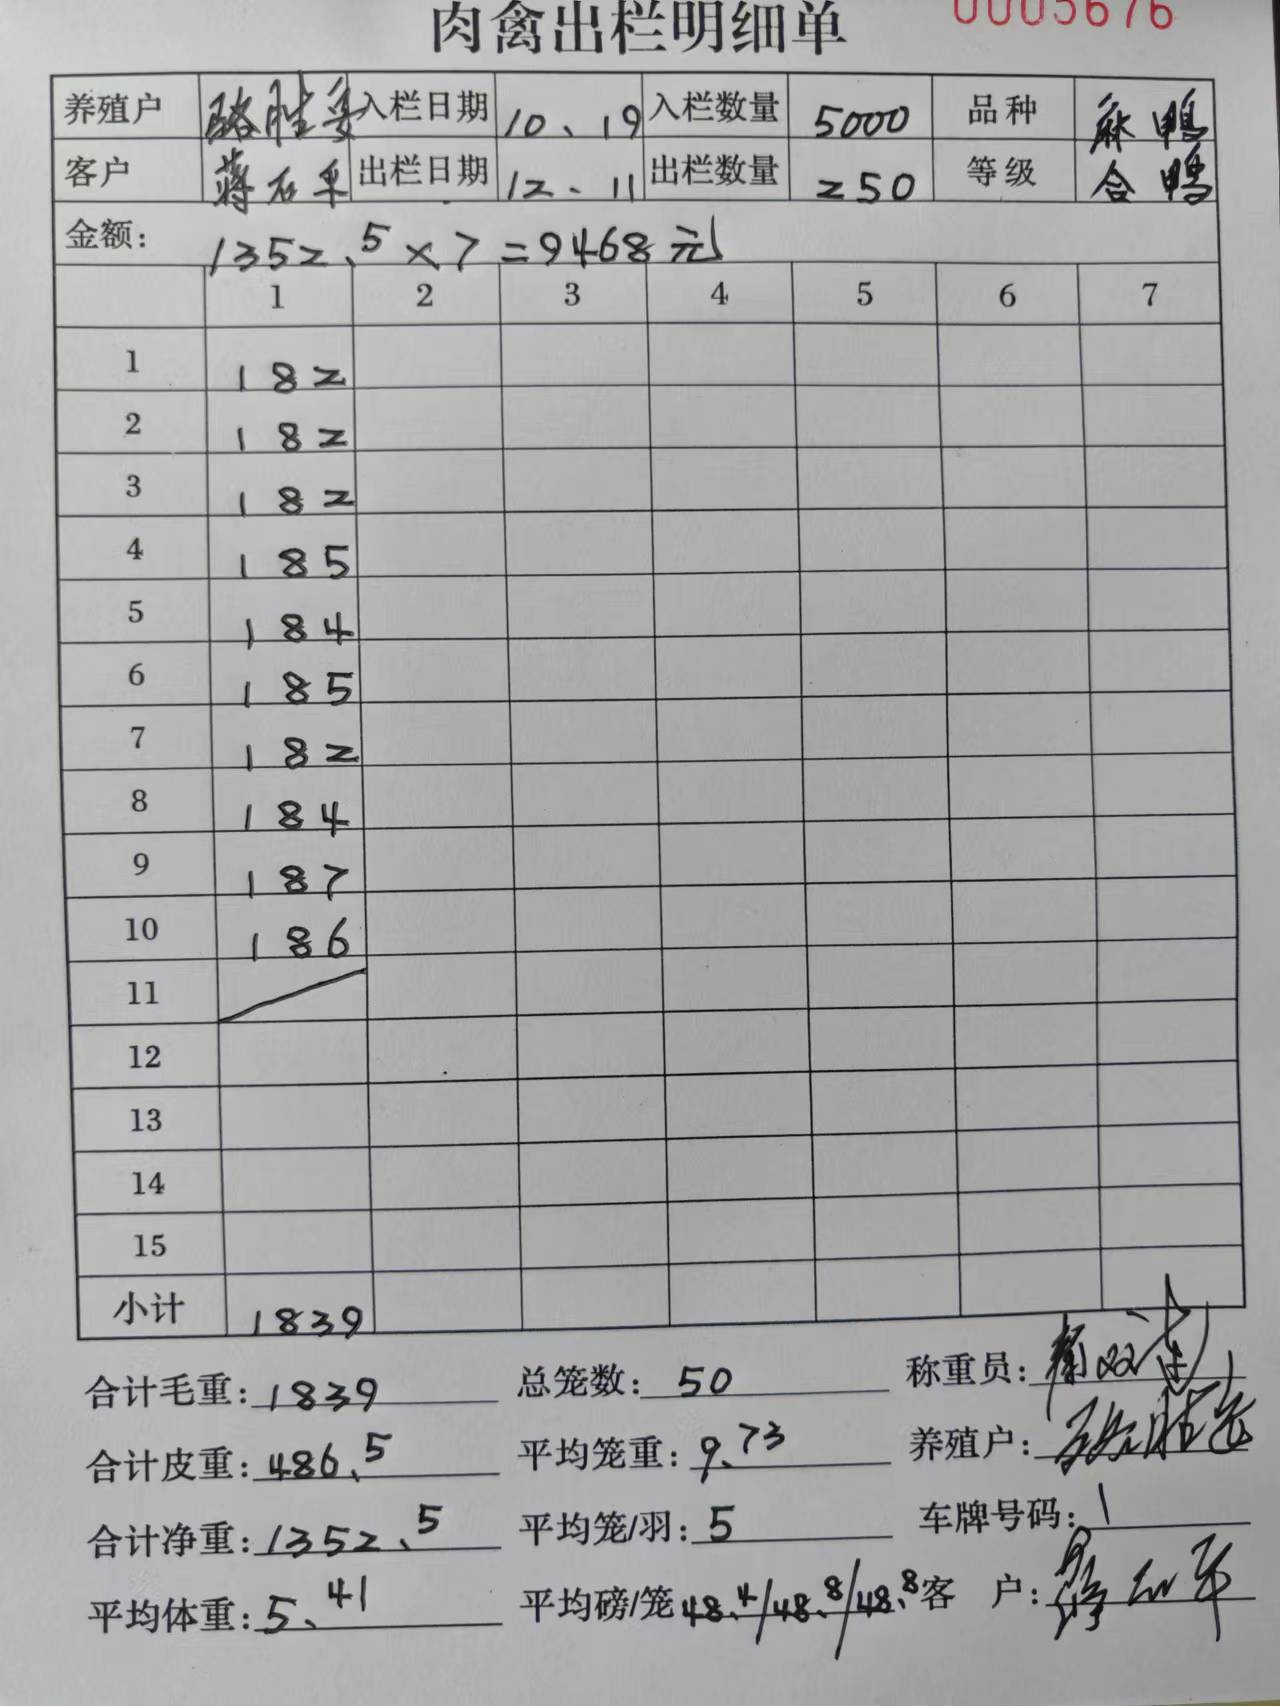 肉禽出栏明细单 0005676
养殖户 骆胜 入栏日期 10、19 入栏数量 5000 品种 麻鸭
客户 蒋石平 出栏日期 12、11 出栏数量 250 等级 合鸭
金额: 1352、5×7=9468元
1 2 3 4 5 6 7
1 182
2 182
3 182
4 185
5 184
6 185
7 182
8 184
9 187
10 186
11
12
13
14
15
小计 1839
合计毛重: 1839 总笼数: 50 称重员:
合计皮重: 486、5 平均笼重: 9、73 养殖户:
合计净重: 1352、5 平均笼/羽: 5 车牌号码: 1
平均体重: 5、41 平均磅/笼 48、4/48、8/48、8 客 户: